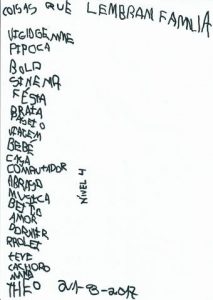 COISAS QUE LEMBRAN FAMILIA
VIDIOGENME
PIPOCA
BOLO
SINEMA
FESTA
PRAIA
PASEIO
VIAGEM
BEBÉ
CASA
COMPUTADOR
ABRASO
MUSICA
BEIJO
AMOR
DORMIR
TEVE
CACHORO
THEO
NIVEL 4